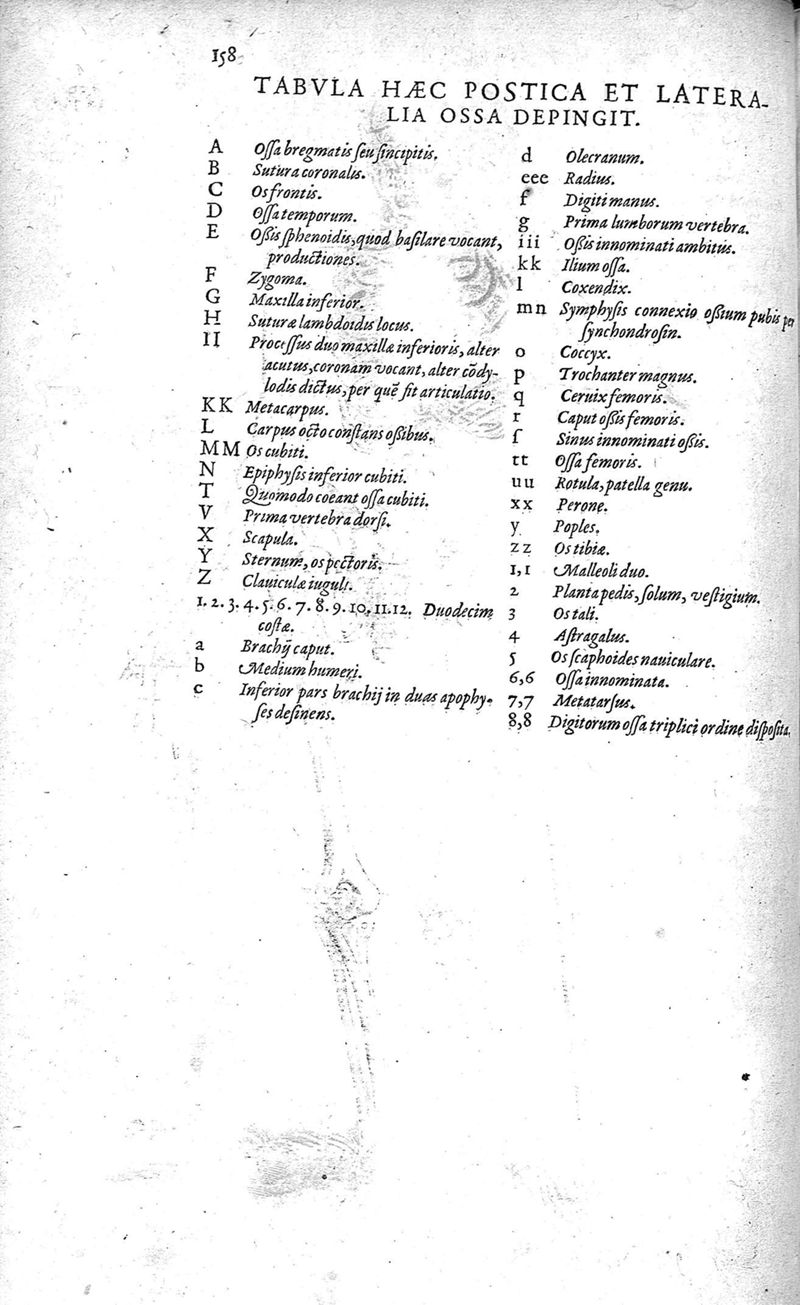 158
TABVLA HÆC POSTICA ET LATERA-
LIA OSSA DEPINGIT.
A Ossa bregmatis seu sincipitis.
B Sutura coronalis.
C Os frontis.
D Ossa temporum.
E Oßis sphenoidis, quod basilare vocant,
productiones.
F Zygoma.
G Maxilla inferior.
H Suturæ lambdoidis locus.
II Processus duo maxillæ inferioris, alter
acutus, coronam vocant, alter cōdy-
lodis dictus, per quē fit articulatio.
KK Metacarpus.
L Carpus octo constans oßibus.
MM Os cubiti.
N Epiphysis inferior cubiti.
T Quomodo coeant ossa cubiti.
V Prima vertebra dorsi.
X Scapula.
Y Sternum, os pectoris.
Z Clauiculæ iuguli.
1. 2. 3. 4. 5. 6. 7. 8. 9. 10. 11. 12. Duodecim
costæ.
a Brachij caput.
b Medium humeri.
c Inferior pars brachij in duas apophy-
ses desinens.
d Olecranum.
eee Radius.
f Digiti manus.
g Prima lumborum vertebra.
iii Oßis innominati ambitus.
kk Ilium ossa.
l Coxendix.
mn Symphysis connexio oßium pubis per
synchondrosin.
o Coccyx.
p Trochanter magnus.
q Ceruix femoris.
r Caput oßis femoris.
ſ Sinus innominati oßis.
tt Ossa femoris.
uu Rotula, patella genu.
xx Perone.
y Poples.
zz Os tibiæ.
1,1 Malleoli duo.
2 Planta pedis, solum, vestigium.
3 Os tali.
4 Astragalus.
5 Os scaphoides nauiculare.
6,6 Ossa innominata.
7,7 Metatarsus.
8,8 Digitorum ossa triplici ordine disposita.